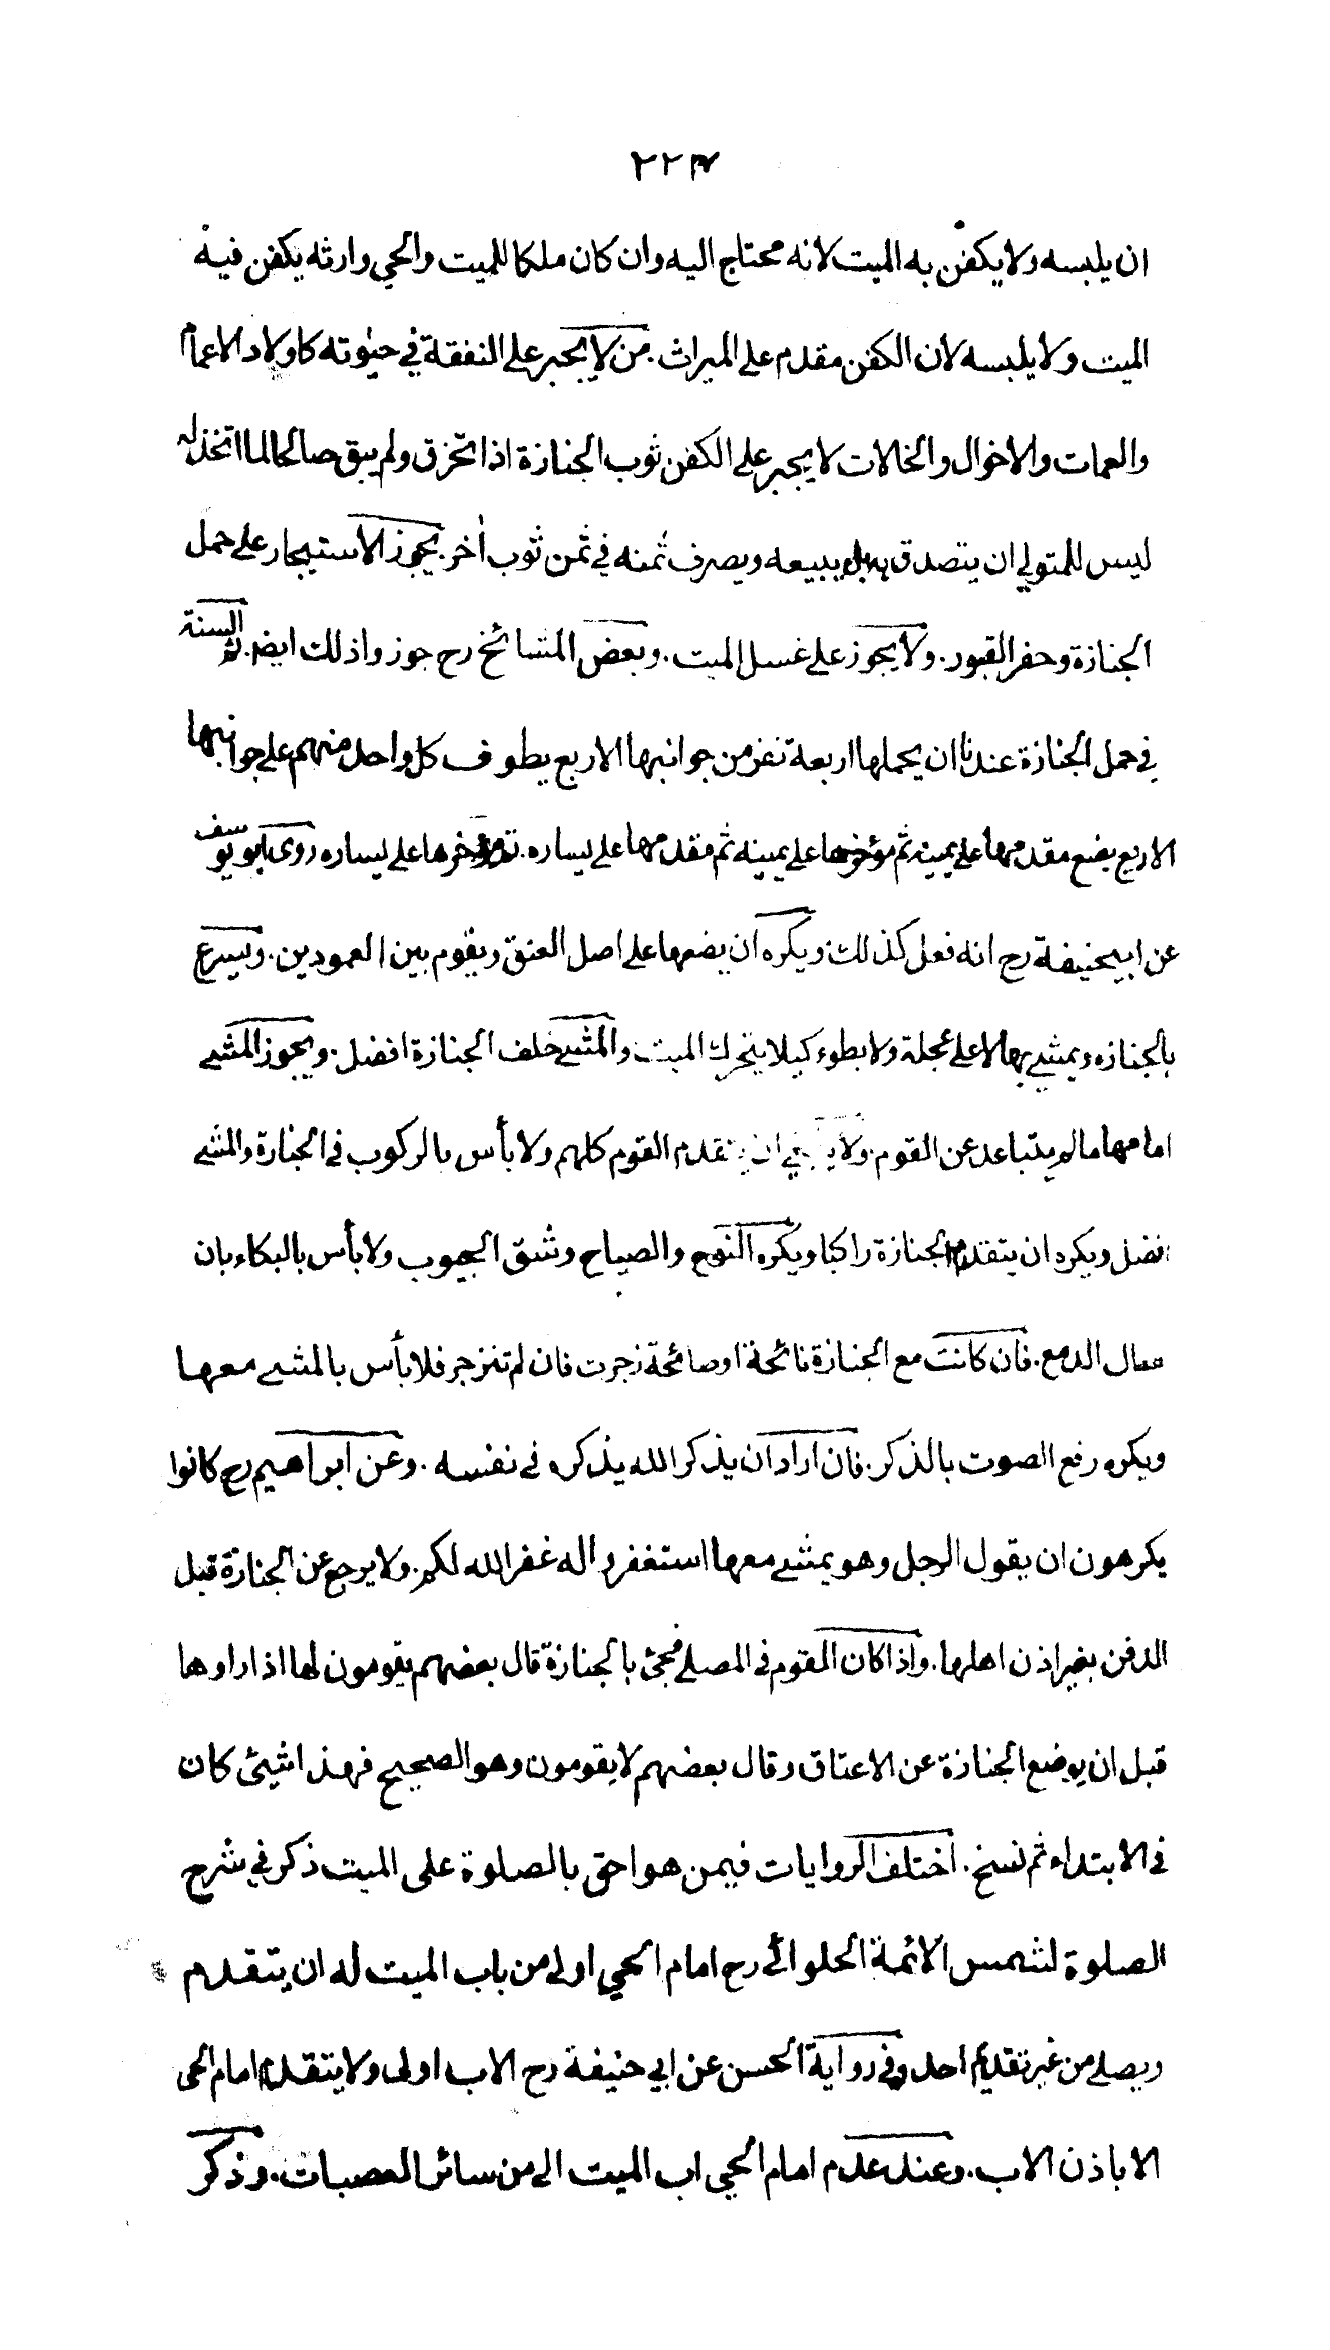 ان يلبسه ولا يكفن به الميت لانه محتاج اليه وان كان ملكا للميت والحي وارثه يكفن فيه
الميت ولا يلبسه لان الكفن مقدم على الميراث. من لا يجبر على النفقة في حيوته كاولاد الاعمام
والعمات والاخوال والخالات لا يجبر على الكفن ثوب الجنازة اذا تخرق ولم يبق صالحا لما اتخذ له
ليس للمتولي ان يتصدق به بل يبيعه ويصرف ثمنه في ثمن ثوب أخر. يجوز الاستيجار على حمل
الجنازة وحفر القبور. ولا يجوز على غسل الميت. وبعض المشائخ رح جوز واذلك ايضا. ثم السنة
في حمل الجنازة عندنا ان يحملها اربعة نفر من جوانبها الاربع يطوف كل واحد منهم على جوانبها
الاربع يضع مقدمها على يمينه ثم مؤخرها على يمينه ثم مقدمها على يساره. ثم مؤخرها على يساره روى ابو يوسف
عن ابيحنيفة رح انه فعل كذلك ويكره ان يضعها على اصل العنق ويقوم بين العمودين. ويسرع
بالجنازه ويمشي بها لا على عجلة ولا بطوء كيلا يتحرك الميت والمشي خلف الجنازة افضل. ويجوز المشي
امامها ما لم يتباعد عن القوم. ولا ينبغي ان يتقدم القوم كلهم ولا بأس بالركوب في الجنازة والمشي
افضل ويكره ان يتقدم الجنازة راكبا ويكره النوح والصياح وشق الجيوب ولا بأس بالبكاء بان
سال الدمع. فان كانت مع الجنازة نائحة او صائحة زجرت فان لم تنزجر فلا بأس بالمشي معها
ويكره رفع الصوت بالذكر. فان اراد ان يذكر الله يذكره في نفسه. وعن ابراهيم رح كانوا
يكرهون ان يقول الرجل وهو يمشي معها استغفروا له غفر الله لكم. ولا يرجع عن الجنازة قبل
الدفن بغير اذن اهلها. واذا كان القوم في المصلى فجئ بالجنازة قال بعضهم يقومون لها اذا راوها
قبل ان يوضع الجنازة عن الاعتاق وقال بعضهم لا يقومون وهو الصحيح فهذا شيئ كان
في الابتداء ثم نسخ. اختلف الروايات فيمن هو احق بالصلوة على الميت ذكر في شرح
الصلوة لشمس الائمة الحلوائي رح امام الحي اولى من باب الميت له ان يتقدم
ويصلي من غير تقديم احد وفي رواية الحسن عن ابي حنيفة رح الاب اولى ولا يتقدم امام الحى
الا باذن الاب. وعند عدم امام الحي اب الميت الى من سائر العصبات. وذكر